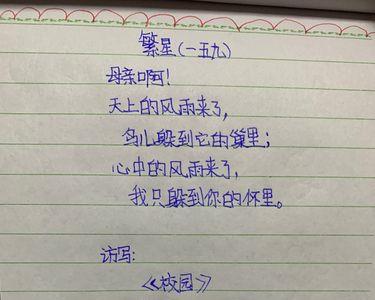 繁星(一五九)
母亲啊!
天上的风雨来了,
鸟儿躲到它的巢里;
心中的风雨来了,
我只躲到你的怀里。
访写:
《校园》